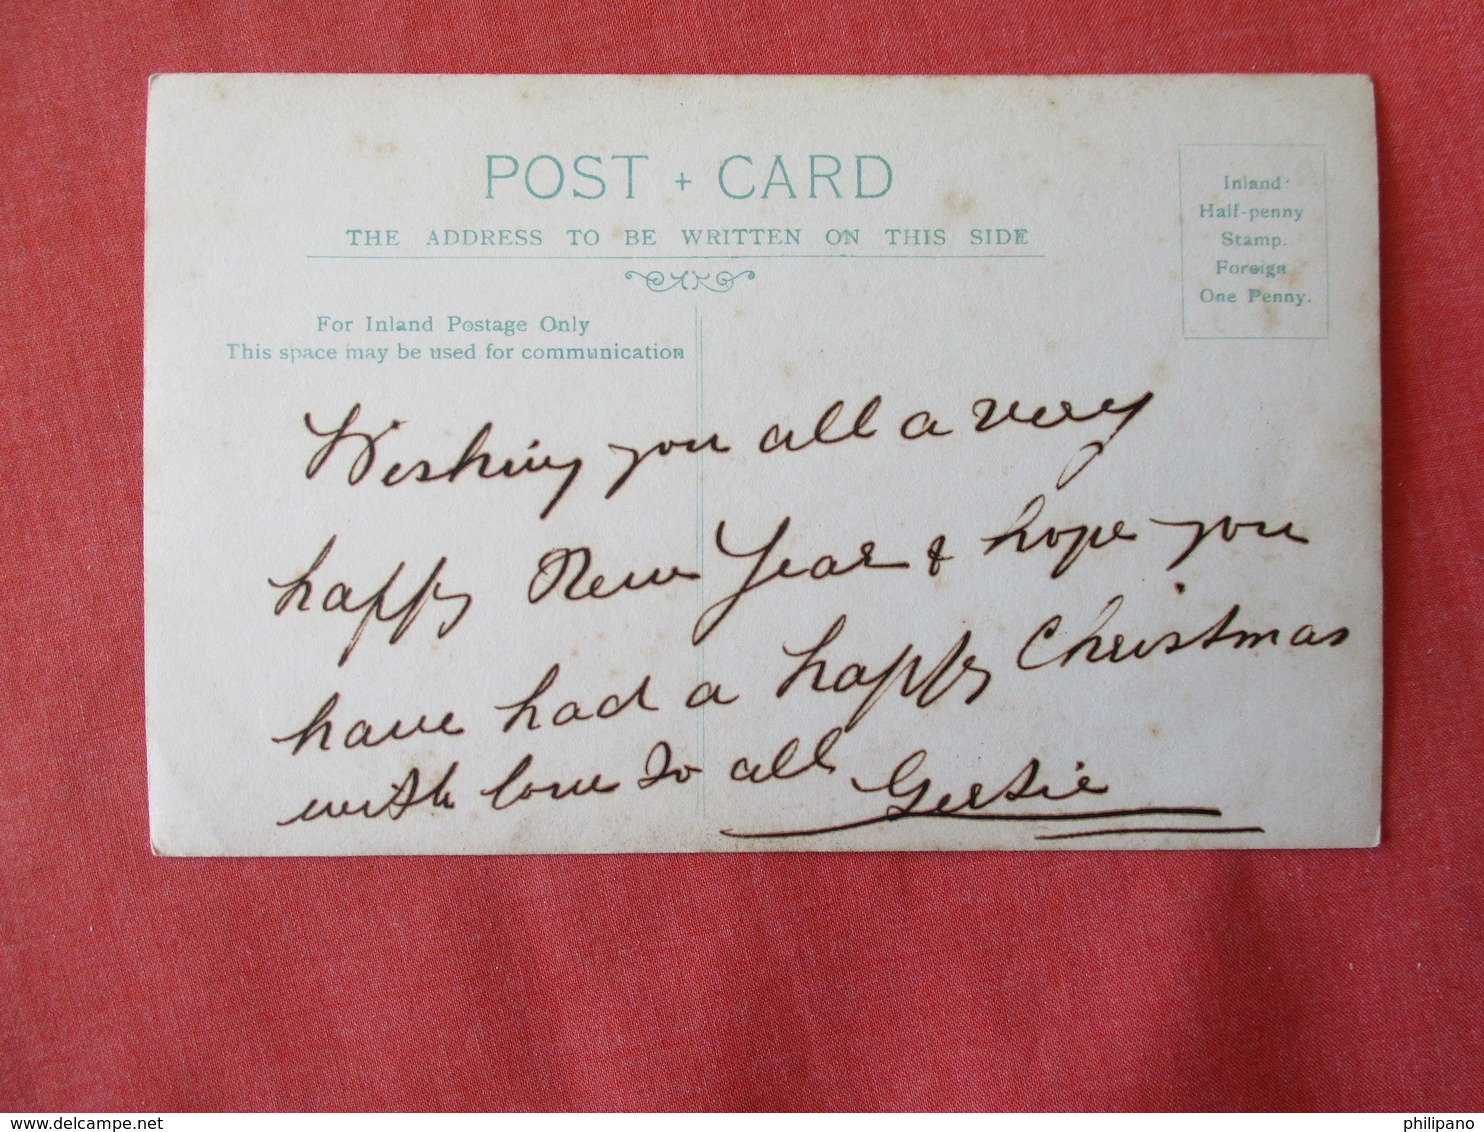 POST + CARD
THE ADDRESS TO BE WRITTEN ON THIS SIDE
Inland
Half-penny
Stamp.
Foreign
One Penny.
For Inland Postage Only
This space may be used for communication
Wishing you all a very
happy New Year & hope you
have had a happy Christmas
with love to all Gertie
delcampe.net
philipano